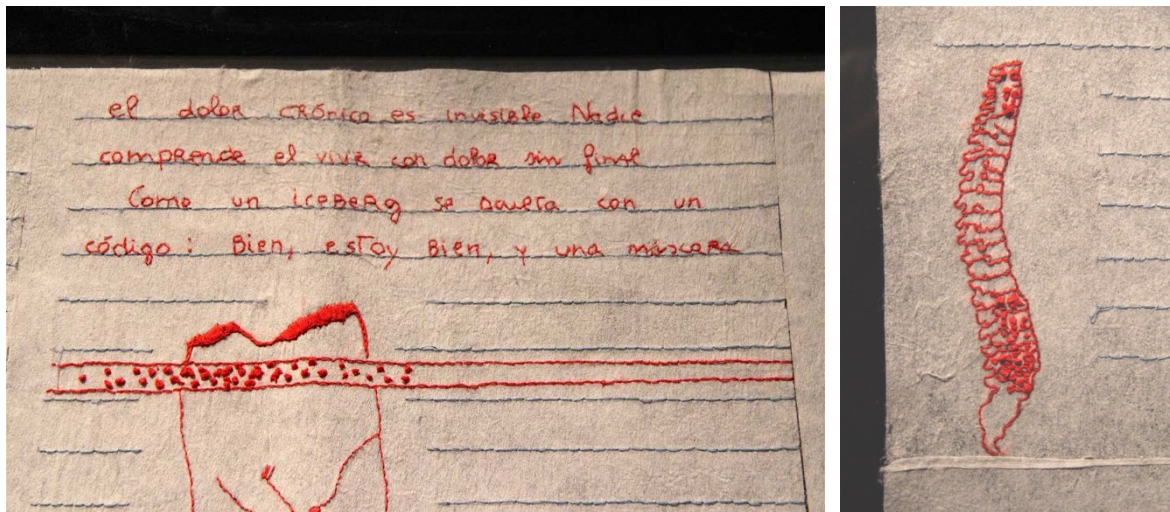 el dolor CRÓnico es invisible Nadie
comprende el vivir con dolor sin final
Como un iceBeRg se con un
código: Bien, esToy Bien, y una máscara